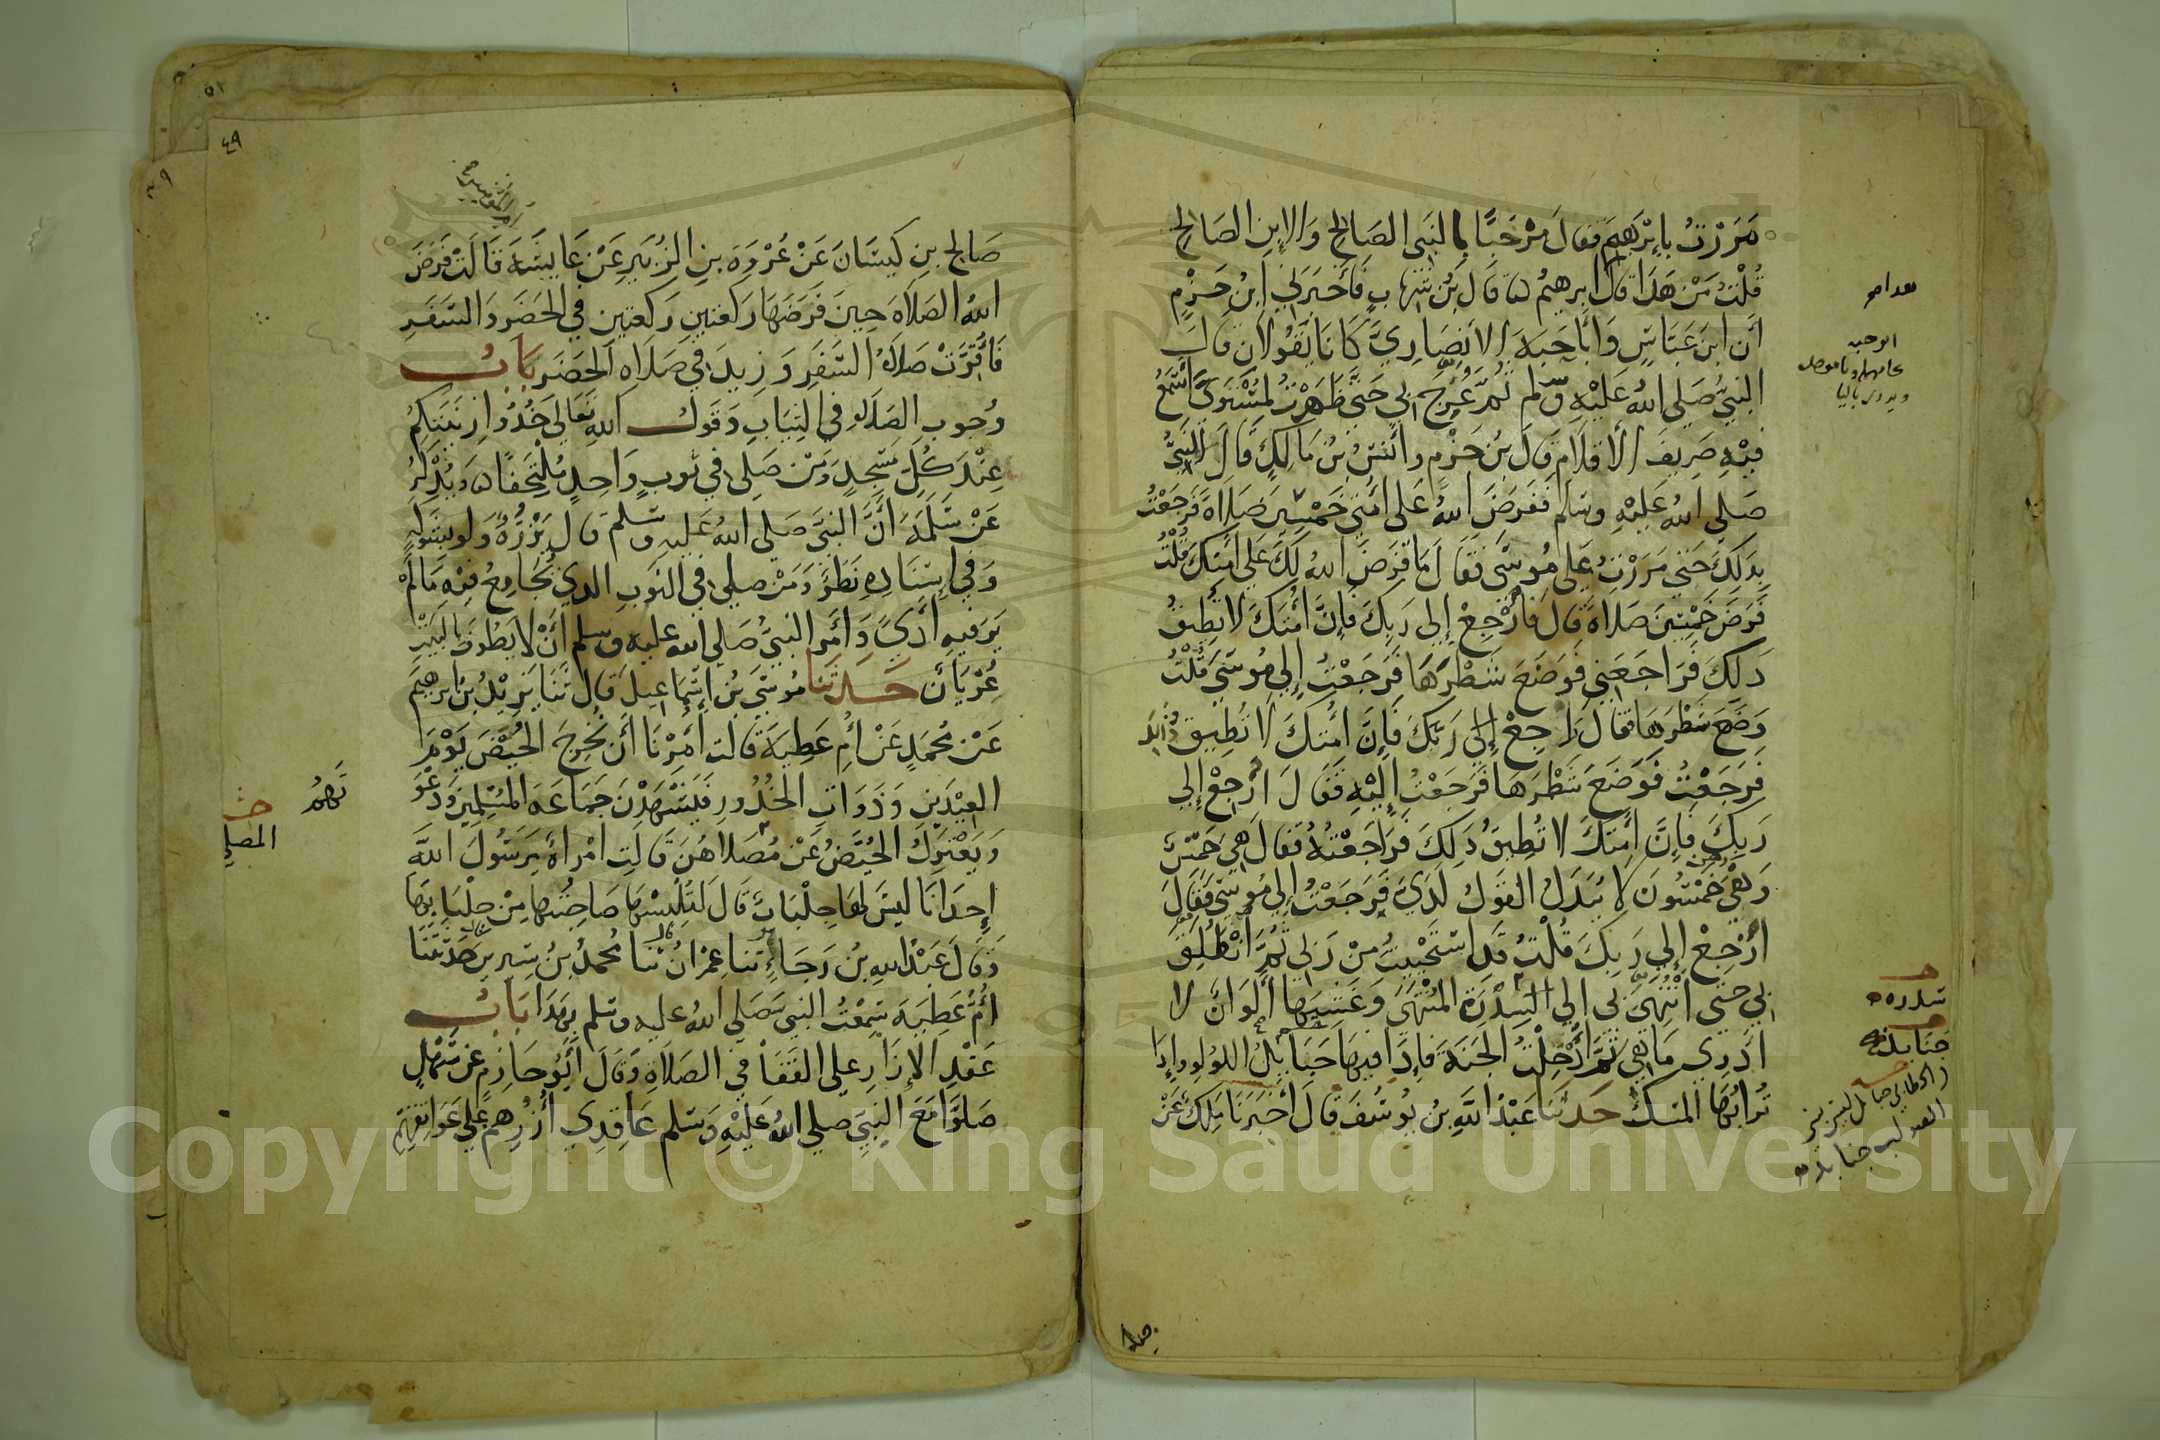 مَرَرْتُ بِإبْرَهِيمَ فقال مَرْحَبًا بالنبي الصَالِحِ وَالابن الصَالِحِ
قُلْتُ مَنْ هَذَا قال ابرهيمُ قال بنُ شهابٍ فَأخبَرَني ابنُ حَزْمٍ
أنّ ابنَ عَبّاسٍ وَابَا حَبّهَ الانصاريَّ كَانَا يَقُولانِ قالَ
النبيُّ صَلى اللهُ عَلَيْهِ وسلم ثُمَّ عُرِجَ بي حَتَّى ظَهَرْتُ لِمُسْتَوىً أسْمَعُ
فيْهِ صَرِيفَ الأقلَامِ قالَ بنُ حَزْمٍ وأنسُ بنُ مَالِكٍ قَالَ النبيُّ
صَلى اللهُ عَليْهِ وسَلم ففَرَضَ اللهُ عَلى أمّتي خَمْسِينَ صَلاةً فَرَجَعْتُ
بِذلِكَ حَتى مَرَرْتُ عَلى مُوسَى فقَالَ مَا فَرَضَ اللهُ لكَ عَلى أمتِكَ قُلْتُ
فَرَضَ خَمْسِينَ صَلاةً قالَ فَارْجِعْ إلى رَبِكَ فَإنَّ أمّتَكَ لا تُطِيقُ
ذَلِكَ فَرَاجَعَنِي فَوَضَعَ شَطْرَهَا فَرَجَعْتُ إلى مُوسَى قُلْتُ
وَضَعَ شَطْرَهَا فقَالَ رَاجِعْ إلى رَبّكَ فَإنَّ أمتَكَ لا تُطِيقُ ذلك
فرَجَعْتُ فَوَضَعَ شَطْرَهَا فَرَجَعْتُ إلَيْهِ فَقَالَ ارْجِعْ إلى
رَبِكَ فَإنَّ أمتَكَ لا تُطِيقُ ذَلِكَ فَرَاجَعْتُهُ فَقالَ هِيَ خَمْسٌ
وَهْيَ خَمْسُونَ لا يُبَدَّلُ القَولُ لَدَيَّ فَرَجَعْتُ إلى مُوسَى فَقَالَ
ارْجِعْ إلى رَبِكَ قُلْتُ قَدِ اسْتَحْيَيْتُ مِنْ رَبي ثُمَّ انْطَلَقَ
بي حَتَّى انْتُهِيَ بي إلى السِدْرَةِ المُنْتَهَى وَغَشِيَهَا ألوَانٌ لا
أدْرِي مَا هِيَ ثمَّ أدْخِلْتُ الجَنَةَ فَإذَا فيهَا حَبَايِلُ اللولو وإذَا
تُرَابُهَا المِسْكُ حَدثنا عَبْدُ اللهِ بنُ يُوسُفَ قَالَ أخبَرَنَا مَلِكٌ عَنْ
سدره
جنابذ
صَالحِ بنِ كَيسَانَ عَنْ عُرْوَةَ بنِ الزُبَيرِ عَنْ عَايشَةَ قَالَتْ فَرَضَ
اللهُ الصَلاةَ حِينَ فَرَضَهَا رَكعَتينِ رَكعَتينِ في الحَضَرِ وَالسَفَرِ
فَأقِرَّتْ صَلاةُ السَفَرِ وَزِيدَ في صَلَاةِ الحَضَرِ بَابُ
وُجُوبِ الصَلَاةِ في الثيَابِ وَقولِ اللهِ تَعَالى خُذُوا زِينَتكمُ
عِنْدَ كُلِ مَسجِدٍ وَمَنْ صَلى في ثوبٍ وَاحِدٍ مُلتَحِفًا وَيُذْكَرُ
عَنْ سَلَمَةَ أنَّ النبيَّ صَلى اللهُ عَليهِ وسَلمَ قال يَزُرُّهُ وَلو بشَوكةٍ
وَفي إسنَادِهِ نَظَرٌ وَمَنْ صلى في الثوبِ الذي يُجَامِعُ فيْهِ مَا لَمْ
يَرَ فيهِ أذًى وَأمَرَ النبيُّ صَلى الله عليه وسلم أنْ لا يَطُوفَ بالبيْتِ
عُرْيَانٌ حَدثنا مُوسَى بنُ إسْمَاعِيلَ قال ثَنَا يَزِيْدُ بنُ ابرَهِيمَ
عَنْ مُحَمدٍ عَنْ أمِ عَطِيةَ قالت أُمِرْنَا أنْ نُخْرِجَ الحُيَّضَ يَوْمَ
العِيْدَينِ وَذَوَاتِ الخُدُورِ فيَشْهَدْنَ جَمَاعَةَ المُسْلِمِينَ وَدَعْوَ
وَيَعْتَزِلُ الحُيَّضُ عَنْ مُصَلاهُنَّ قَالتِ امْرأةٌ يَرَسُولَ اللهِ
إحدَانَا ليسَ لهَا جِلْبَابٌ قَالَ لتُلبِسْهَا صَاحِبَتُهَا مِنْ جِلْبَابِهَا
وَقَالَ عَبْدُ اللهِ بنُ رَجَاءٍ ثنا عِمْرَانُ ثنا مُحَمدُ بنُ سِيرِينَ حَدثَتنَا
أمُّ عَطِيةَ سَمِعْتُ النبيَّ صَلى اللهُ عليه وسلم بِهَذَا بَابُ
عَقْدِ الإزَارِ على القَفَا في الصَلاةِ وَقَالَ أبُو حَازِمٍ عن سَهْلٍ
صَلَوْا مَعَ النبيِّ صلى اللهُ عَلَيْهِ وَسَلم عَاقِدِي أُزُرِهِمْ عَلى عَوَاتِقِهِم
تهم
المصلى
٤٩
Copyright © King Saud University